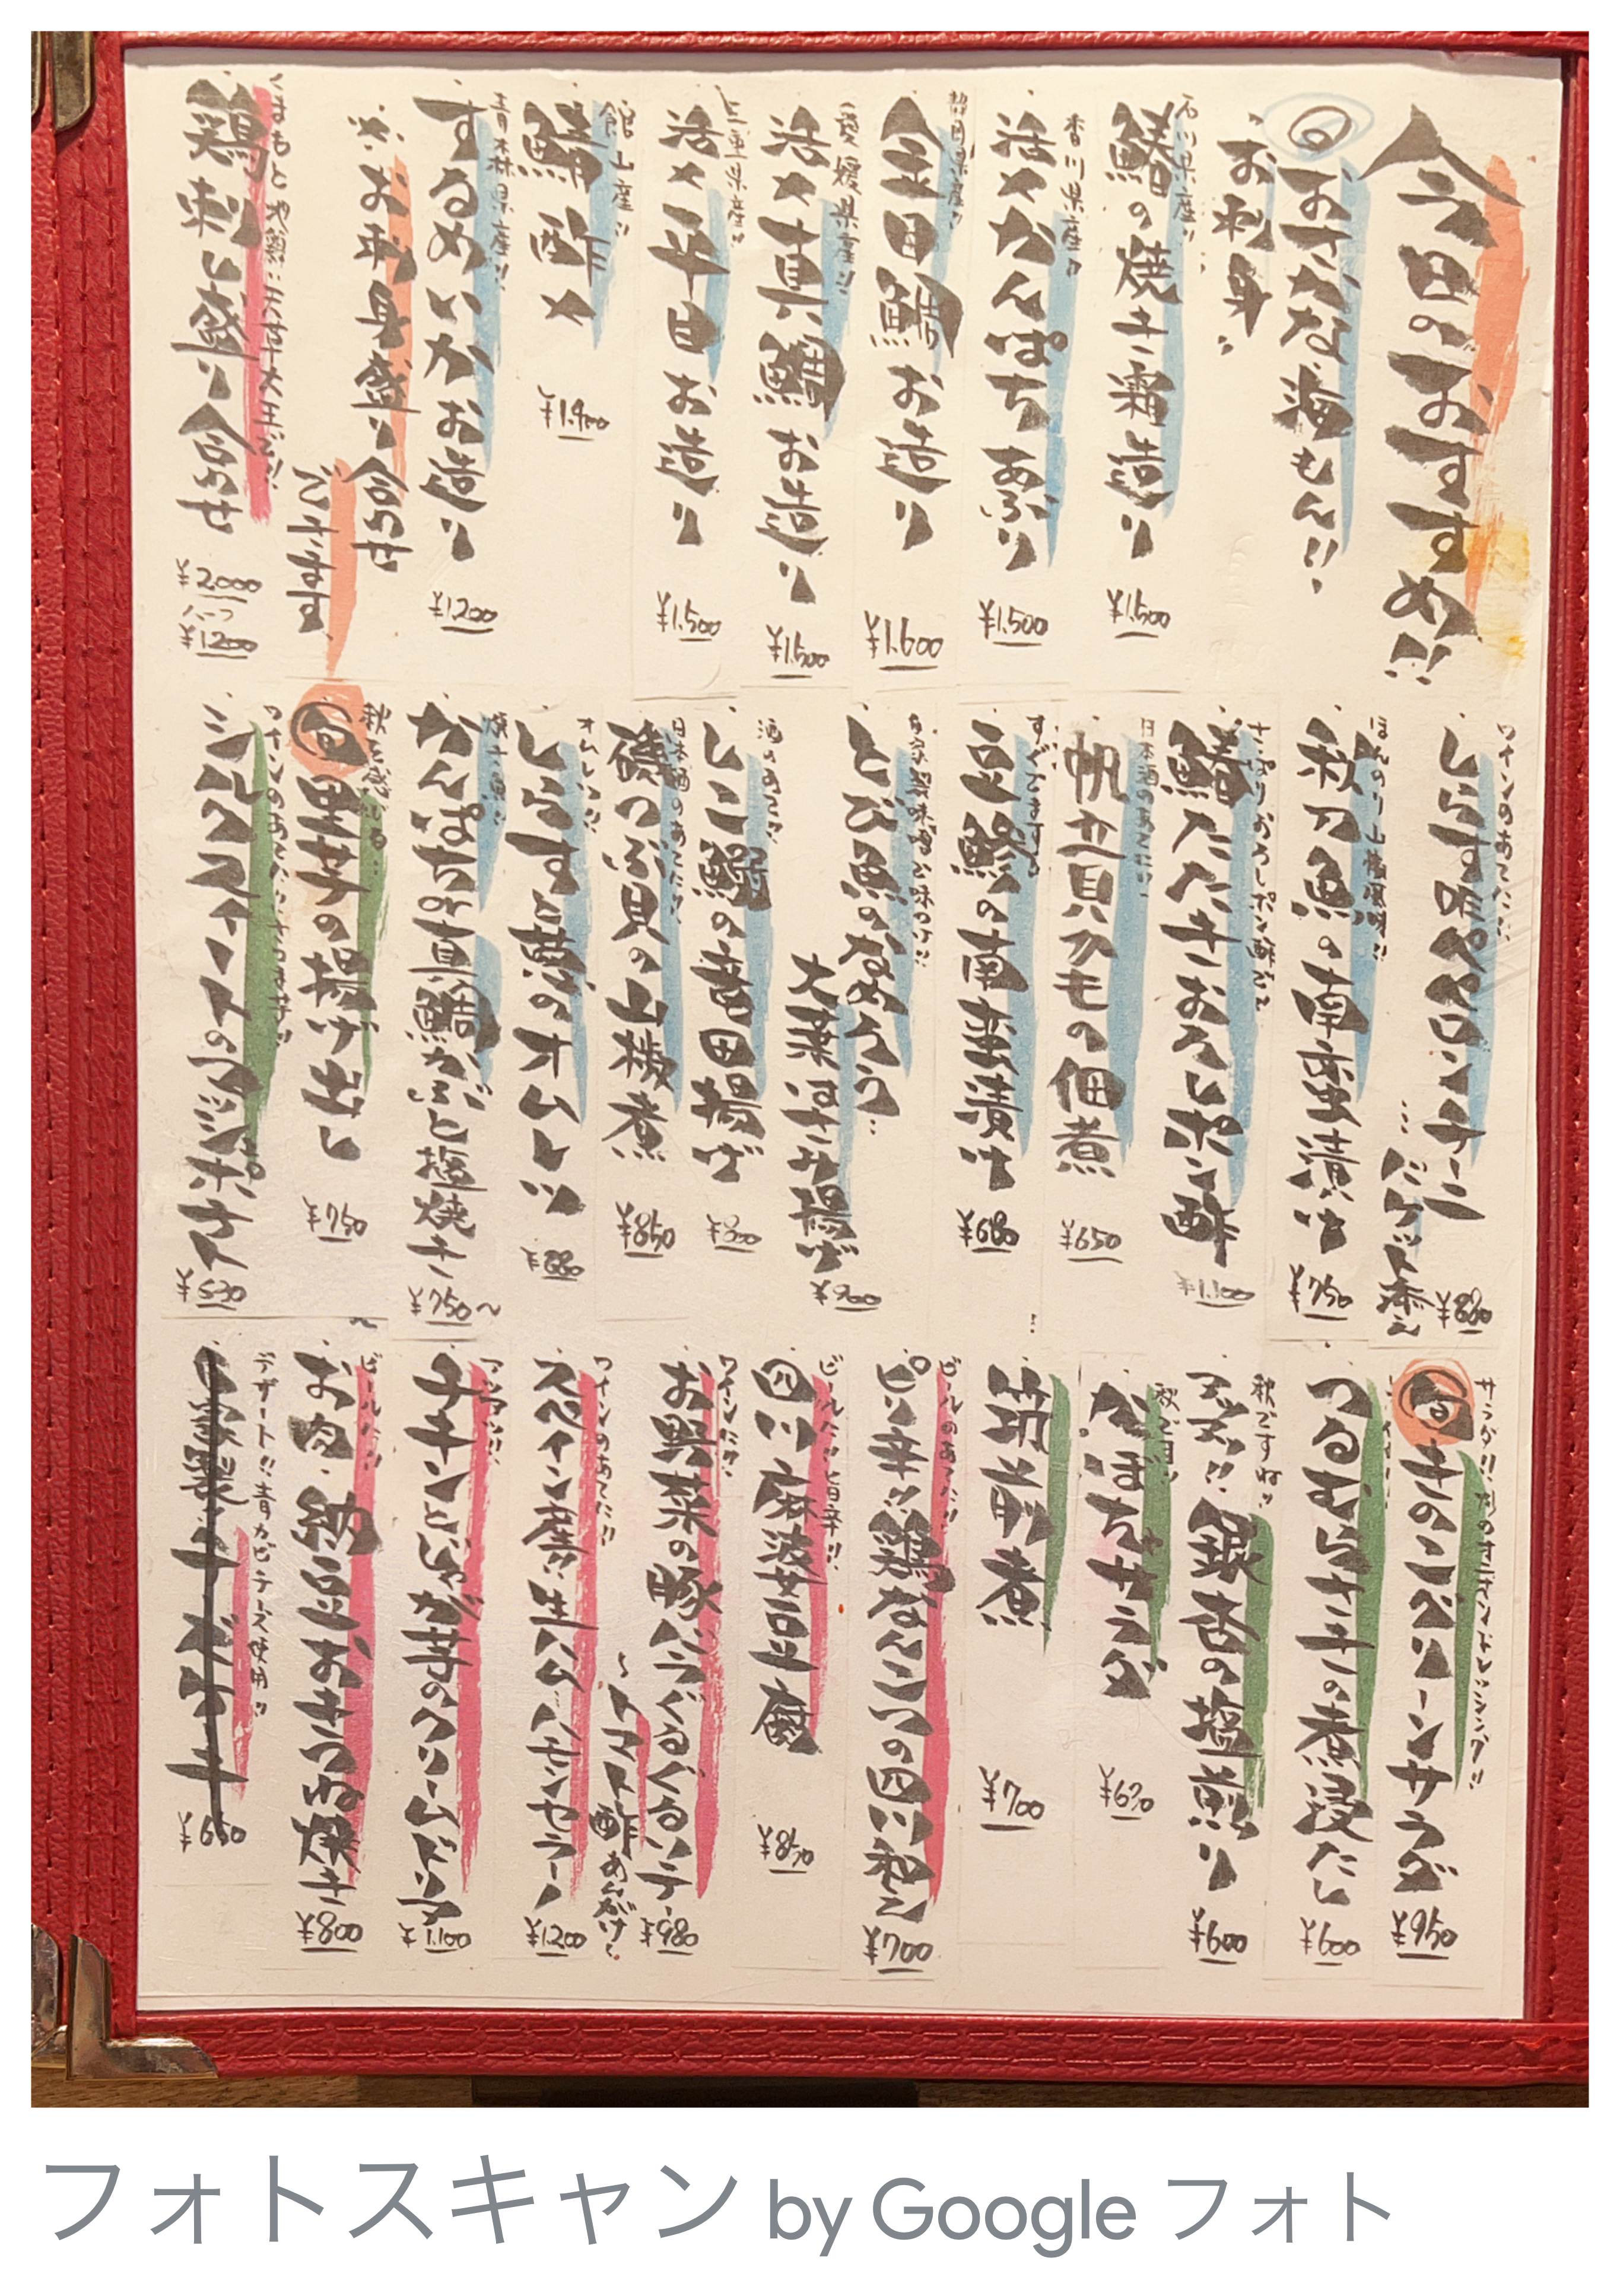 今日のおすすめ!!
おさかな海もん!!
お刺身:
石川県産!!
鰆の焼き霜造り
¥1.500
香川県産!!
活〆かんぱちあぶり
¥1.500
静岡県産!!
金目鯛お造り
¥1.600
愛媛県産!!
活〆真鯛お造り
¥1.500
三重県産!!
活〆平目お造り
¥1.500
館山産!!
鯵酢〆
青森県産!!
するめいかお造り
¥1.200
お刺身盛り合わせ
ございます。
くまもと地鶏:天草大王で!!
鶏刺し盛り合わせ
¥2.000
ハーフ
¥1.200
ワインのあてに!!
しらす味ペペロンチーニ
バケット添え
¥880
ほんのり山椒風味!!
秋刀魚の南蛮漬け
¥750
さっぱりおろしポン酢だよ
鰆たたきおろしポン酢
¥1.100
日本酒のあてに!!
帆立貝ヒモの佃煮
¥650
すぐでますよ
豆鯵の南蛮漬け
¥680
自家製味噌で味つけ!!
とび魚のなめろう:
大葉はさみ揚げ
¥900
酒のあてに!!
しこ鰯の竜田揚げ
¥800
日本酒のあてに!!
磯つぶ貝の山椒煮
¥850
オムレツ!!
しらすと葱のオムレツ
¥880
焼き魚!!
かんぱちor真鯛かぶと塩焼き
¥750〜
秋を感じる:
里芋の揚げ出し
¥750
ワインのあてに!!さつま芋!!
シルクスイートのマッシュポテト
サラダ!!
きのこベーコンサラダ
¥950
つるむらさきの煮浸たし
¥600
秋ですね!!
銀杏の塩煎り
¥600
かぼちゃサラダ
¥630
筑前煮
¥700
ビールのあてに!!
ピリ辛!!鶏なんこつの四川和え
¥700
ビールに!!旨辛!!
四川麻婆豆腐
¥850
ワインに!!
お野菜の豚バラぐるぐるソテー
〜トマト酢あんがけ〜
¥980
ワインのあてに!!
スペイン産!!生ハム ハモンセラーノ
¥1.200
アッツアツ!!
チキンとじゃが芋のクリームドリア
¥1.100
ビールに!!
お肉・納豆おきつね焼き
¥800
デザート!!青カビチーズ使用!!
¥650
フォトスキャン by Google フォト